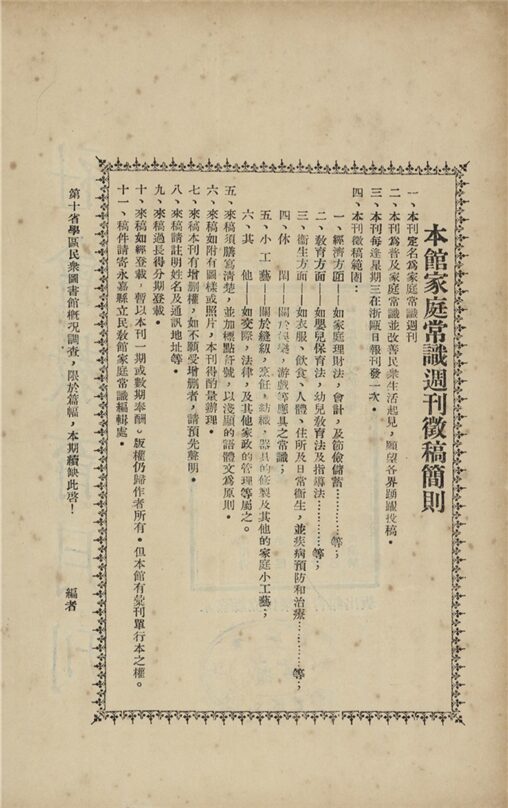 本館家庭常識週刊徵稿簡則
一、本刊定名為家庭常識週刊
二、本刊為普及家庭常識並改善民衆生活起見，願望各界踴躍投稿。
三、本刊每逢星期三在浙甌日報刊發一次。
四、本刊徵稿範圍：
一、經濟方面——如家庭理財法，會計，及節儉儲蓄…………等；
二、敎育方面——如嬰兒保育法，幼兒敎育法及指導法…………等；
三、衞生方面——如衣服、飲食、人體、住所及日常衞生，並疾病預防和治療…………等；
四、休　閒——關於娛樂，游戲等應具之常識；
五、小工藝——關於縫紉，烹飪，紡織，器具的修製及其他的家庭小工藝；
六、其　他——如交際，法律，及其他家政的管理等屬之。
五、來稿須謄寫清楚，並加標點符號，以淺顯的語體文為原則。
六、來稿如附有圖樣或照片，本刊得酌量辦理。
七、來稿本刊有增删權，如不願受增删者，請預先聲明。
八、來稿請註明姓名及通訊地址等。
九、來稿過長得分期登載。
十、來稿如經登載，暫以本刊一期或數期奉酬。版權仍歸作者所有。但本館有彙刊單行本之權。
十一、稿件請寄永嘉縣立民敎館家庭常識編輯處。
第十省學區民衆圖書館概况調查，限於篇幅，本期續缺此啓！　編者